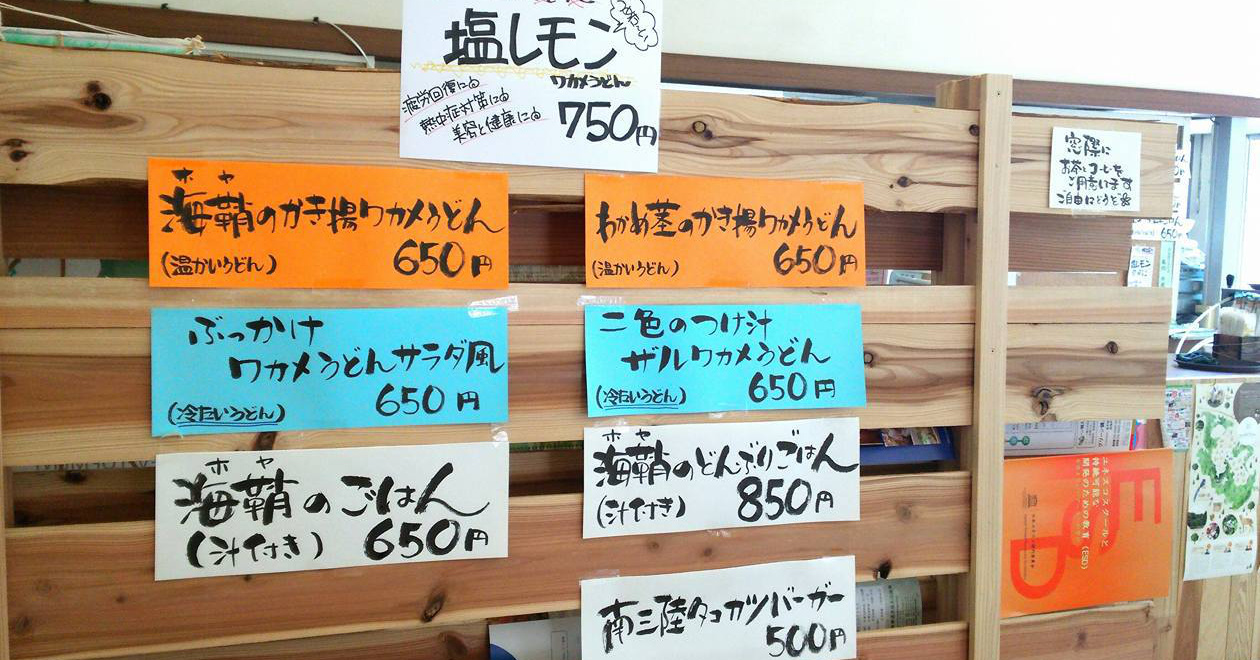 塩レモン
ワカメうどん
疲労回復にる
熱中症対策にる
美容と健康にる
750円
ホヤ
海鞘のかき揚ワカメうどん
(温かいうどん) 650円
わかめ茎のかき揚ワカメうどん
(温かいうどん) 650円
ぶっかけ
ワカメうどんサラダ風
(冷たいうどん) 650円
二色のつけ汁
ザルワカメうどん
(冷たいうどん) 650円
ホヤ
海鞘のごはん
(汁付き) 650円
ホヤ
海鞘のどんぶりごはん
(汁付き) 850円
南三陸タコカツバーガー
500円
窓際に
お茶とコーヒーを
ご用意います
ご自由にどうぞ
ユネスコスクールと
持続可能な
開発のための教育(ESD)
ESD
塩レモン
650円